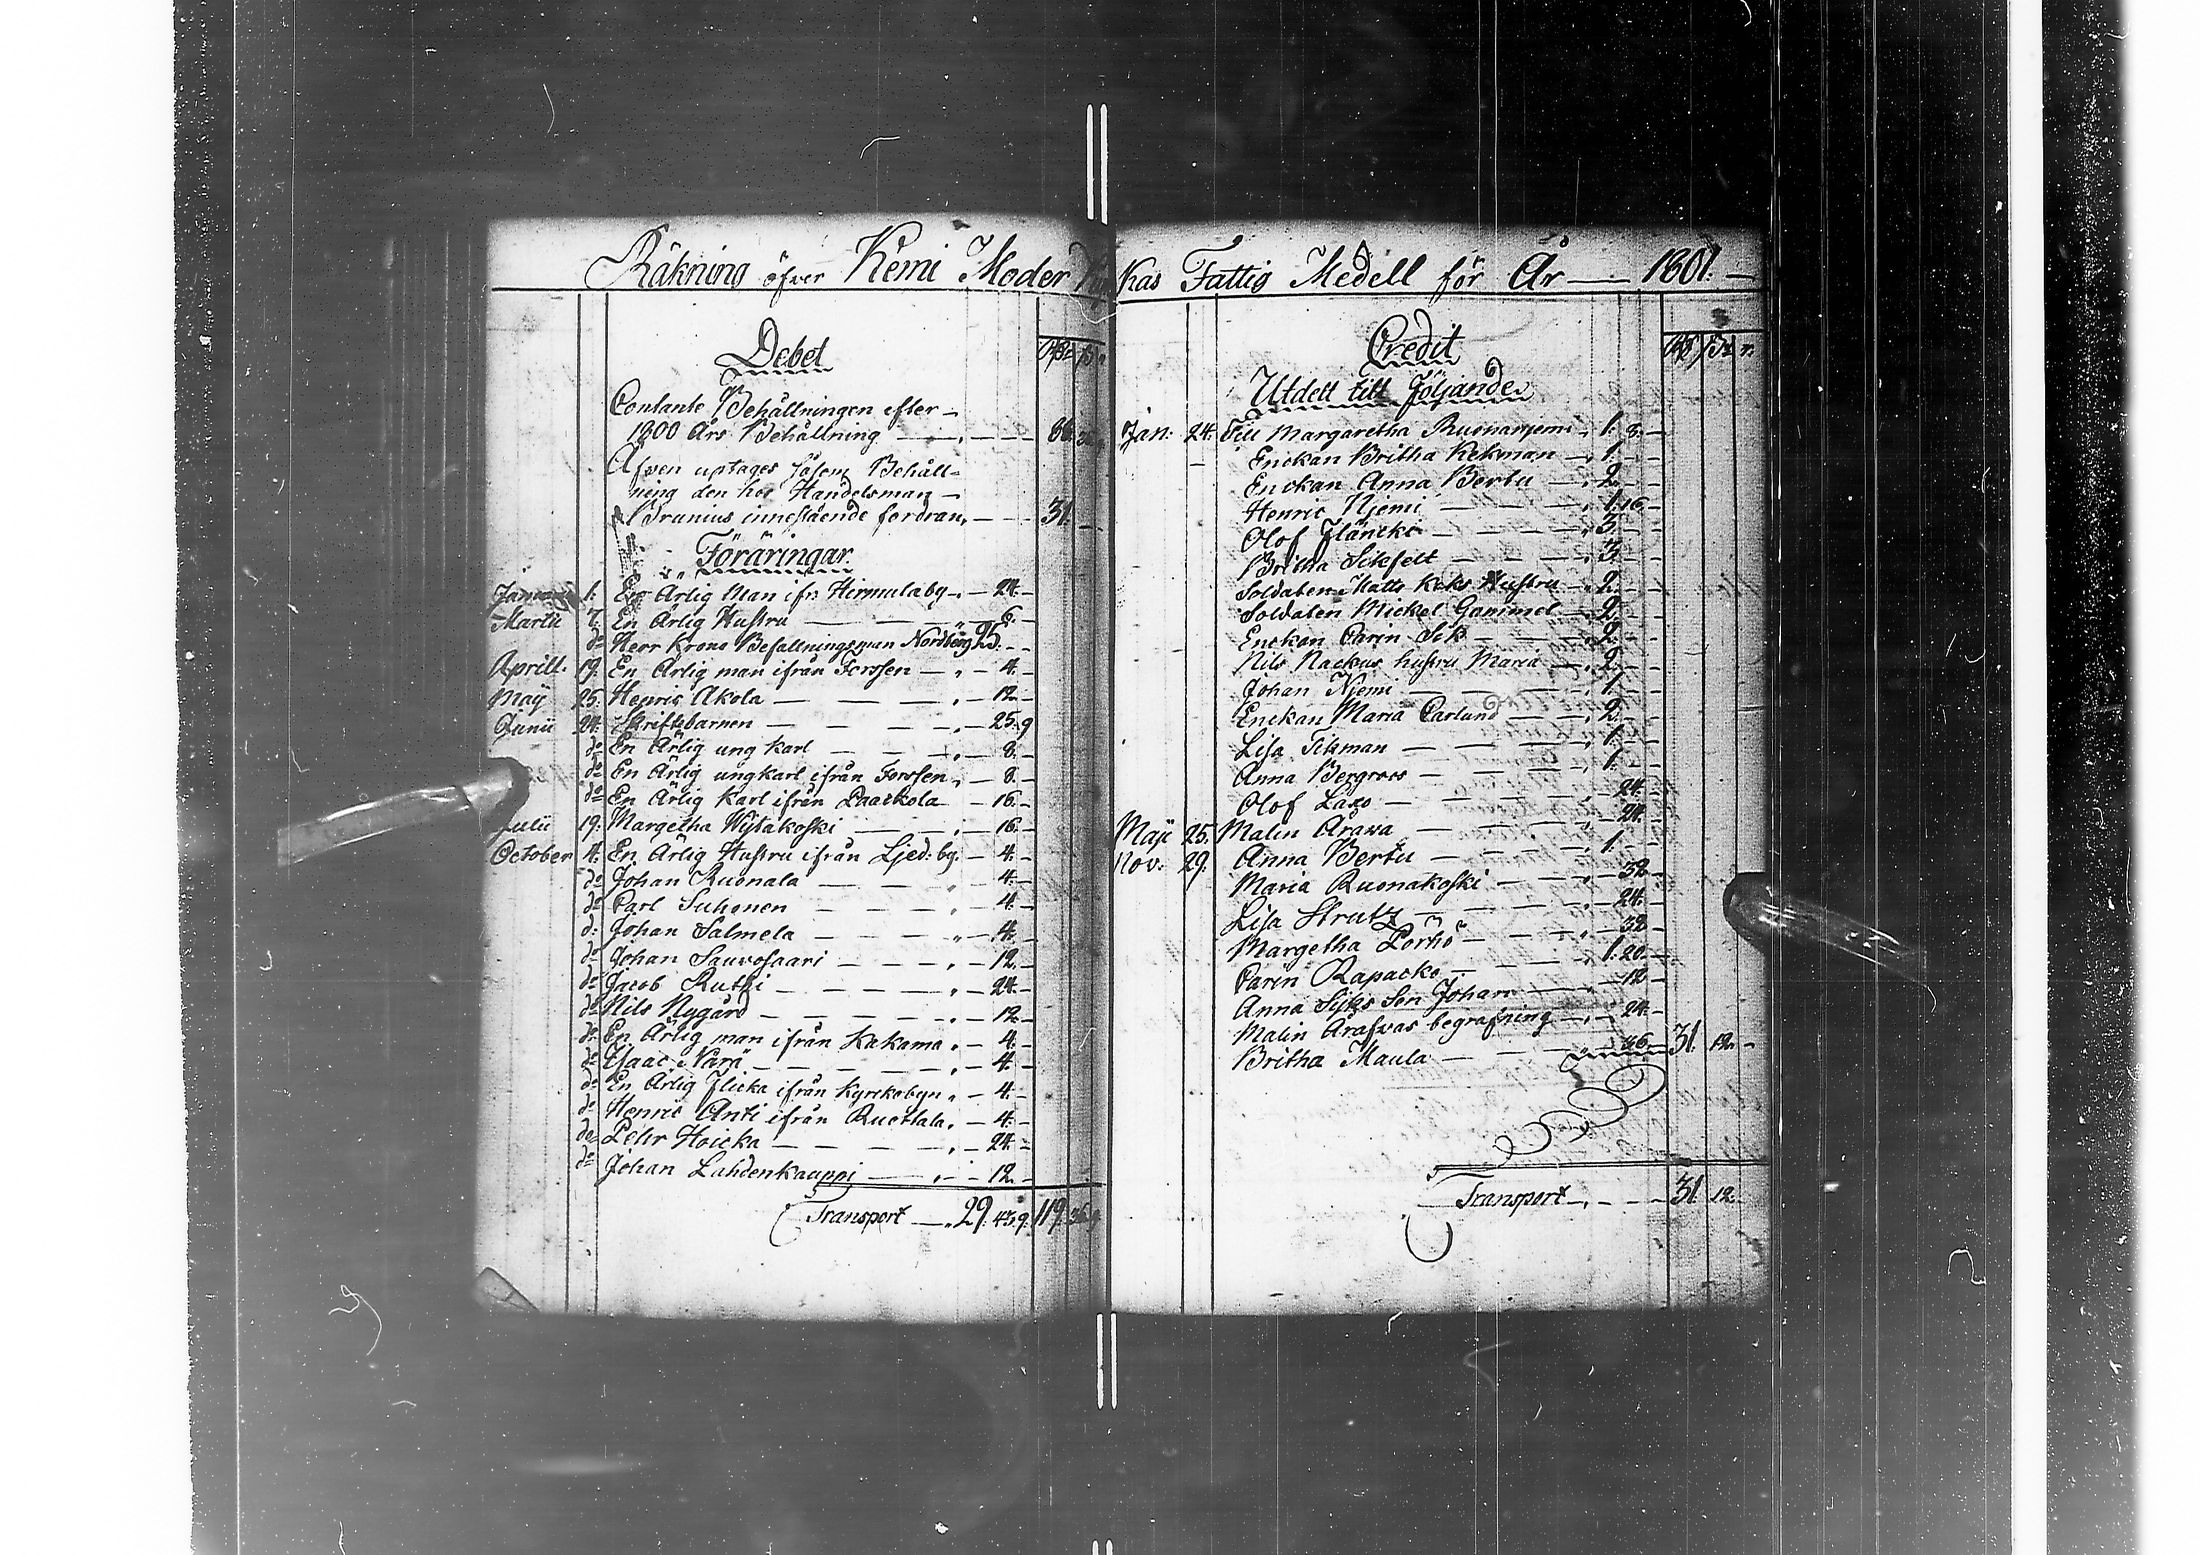 Räkning öfver Kemi Moder
Debet
Contante Behållningen efter
1800 Års Behållning — 88.
Äfven uptages såsom Behåll-
ning den hos Handelsman
Brunius inneslående fordran, — 31.
Föräringar.
Januarii 1. En Ärlig Man ifr. Hirmulaby — 24. —
Martii 7. En Ärlig Hustru — 6. —
do Herr Krono Befallningsman Nordberg 25. —
Aprill. 19. En Ärlig man ifrån Forssen — 4. —
Maij 25. Henric Akola — 12 —
Junii 24. Skriftebarnen — 25. 9
do En Ärlig ung karl — 8. —
do En Ärlig ungkarl ifrån Forssen — 8. —
do En Ärlig Karl ifrån Paackola — 16. —
Julii 19. Margetha Wijtakoski — 16. —
October 4. En Ärlig Hustru ifrån Ljed: by. — 4. —
do Johan Ruonala — 4. —
do Carl Suhonen — 4. —
do Johan Salmela — 4. —
do Johan Sauvosaari — 12. —
do Jacob Rutji — 24. —
do Nils Nygård — 12 —
do En Ärlig man ifrån Kakama — 4. —
do Isaac Närä — 4. —
do En Ärlig Flicka ifrån Kyrckobyn — 4. —
do Henric Anti ifrån Ruottala — 4. —
do Pehr Hoicka — 24. —
do Johan Lahdenkauppi — 12. —
Transport — 29. 45. 9. 119. 36.
kas Fattig Medell för År — 1801. —
Credit
Utdelt till Följande
Jan: 24. Till Margaretha Ruonaniemi — 1. 8. —
Enckan Britha Kekman — 1. —
Enckan Anna Bertu — 2. —
Henric Njemi — 1. 16. —
Olof Fläncki — 3. —
Britha Sikfelt — 3. —
Soldaten Matts Keks Hustru — 2. —
Soldaten Mickel Gammel — 2. —
Enckan Carin Sik — 2. —
Nils Nackus hustru Maria — 2. —
Johan Njemi — 1. —
Enckan Maria Carlund — 2. —
Lisa Tikman — 1. —
Anna Bergroos — 1. —
Olof Laxo — 24. —
Maji 25. Malin Arawa — 24. —
Nov: 29. Anna Bertu — 1. —
Maria Ruonakoski — 32 —
Lisa Strutz — 24. —
Margetha Pörhö — 32 —
Carin Rapacko — 1. 20. —
Anna Sijks Son Johan — 12 —
Malin Arafvas begrafning — 24. —
Britha Maula — 46. — 31. 12. —
Transport — 31. 12.